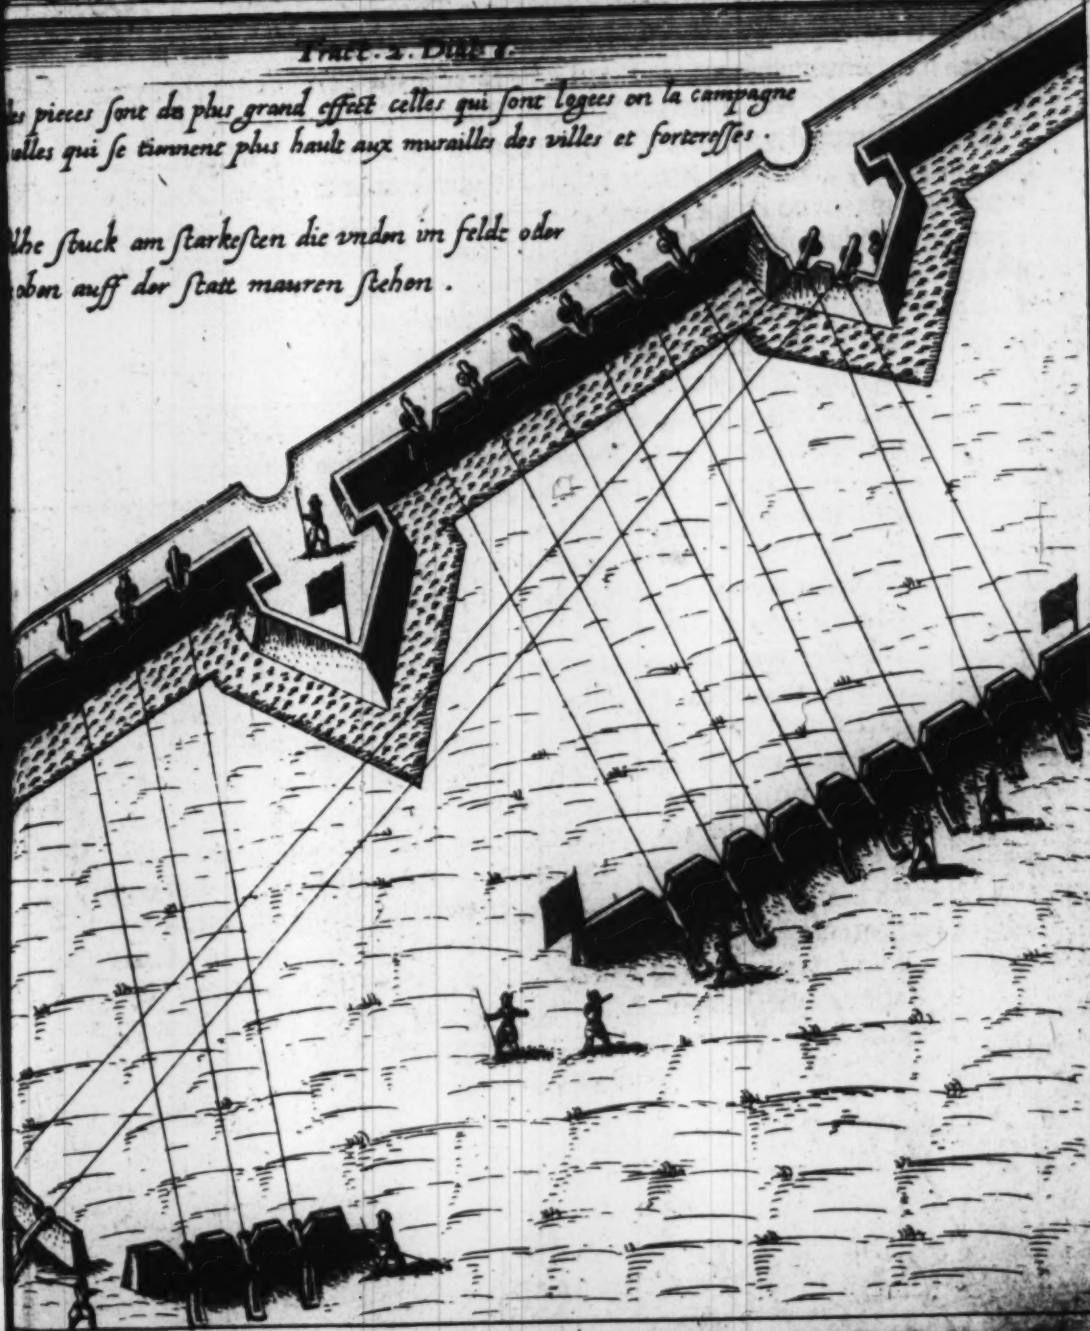 Tract. 2. Dial. 
es pieces sont de plus grand effect celles qui sont logees en la campagne
elles qui se tiennent plus hault aux murailles des villes et forteresses.
lhe stuck am starkesten die vnden im feldt oder
oben auff der statt mauren stehen.